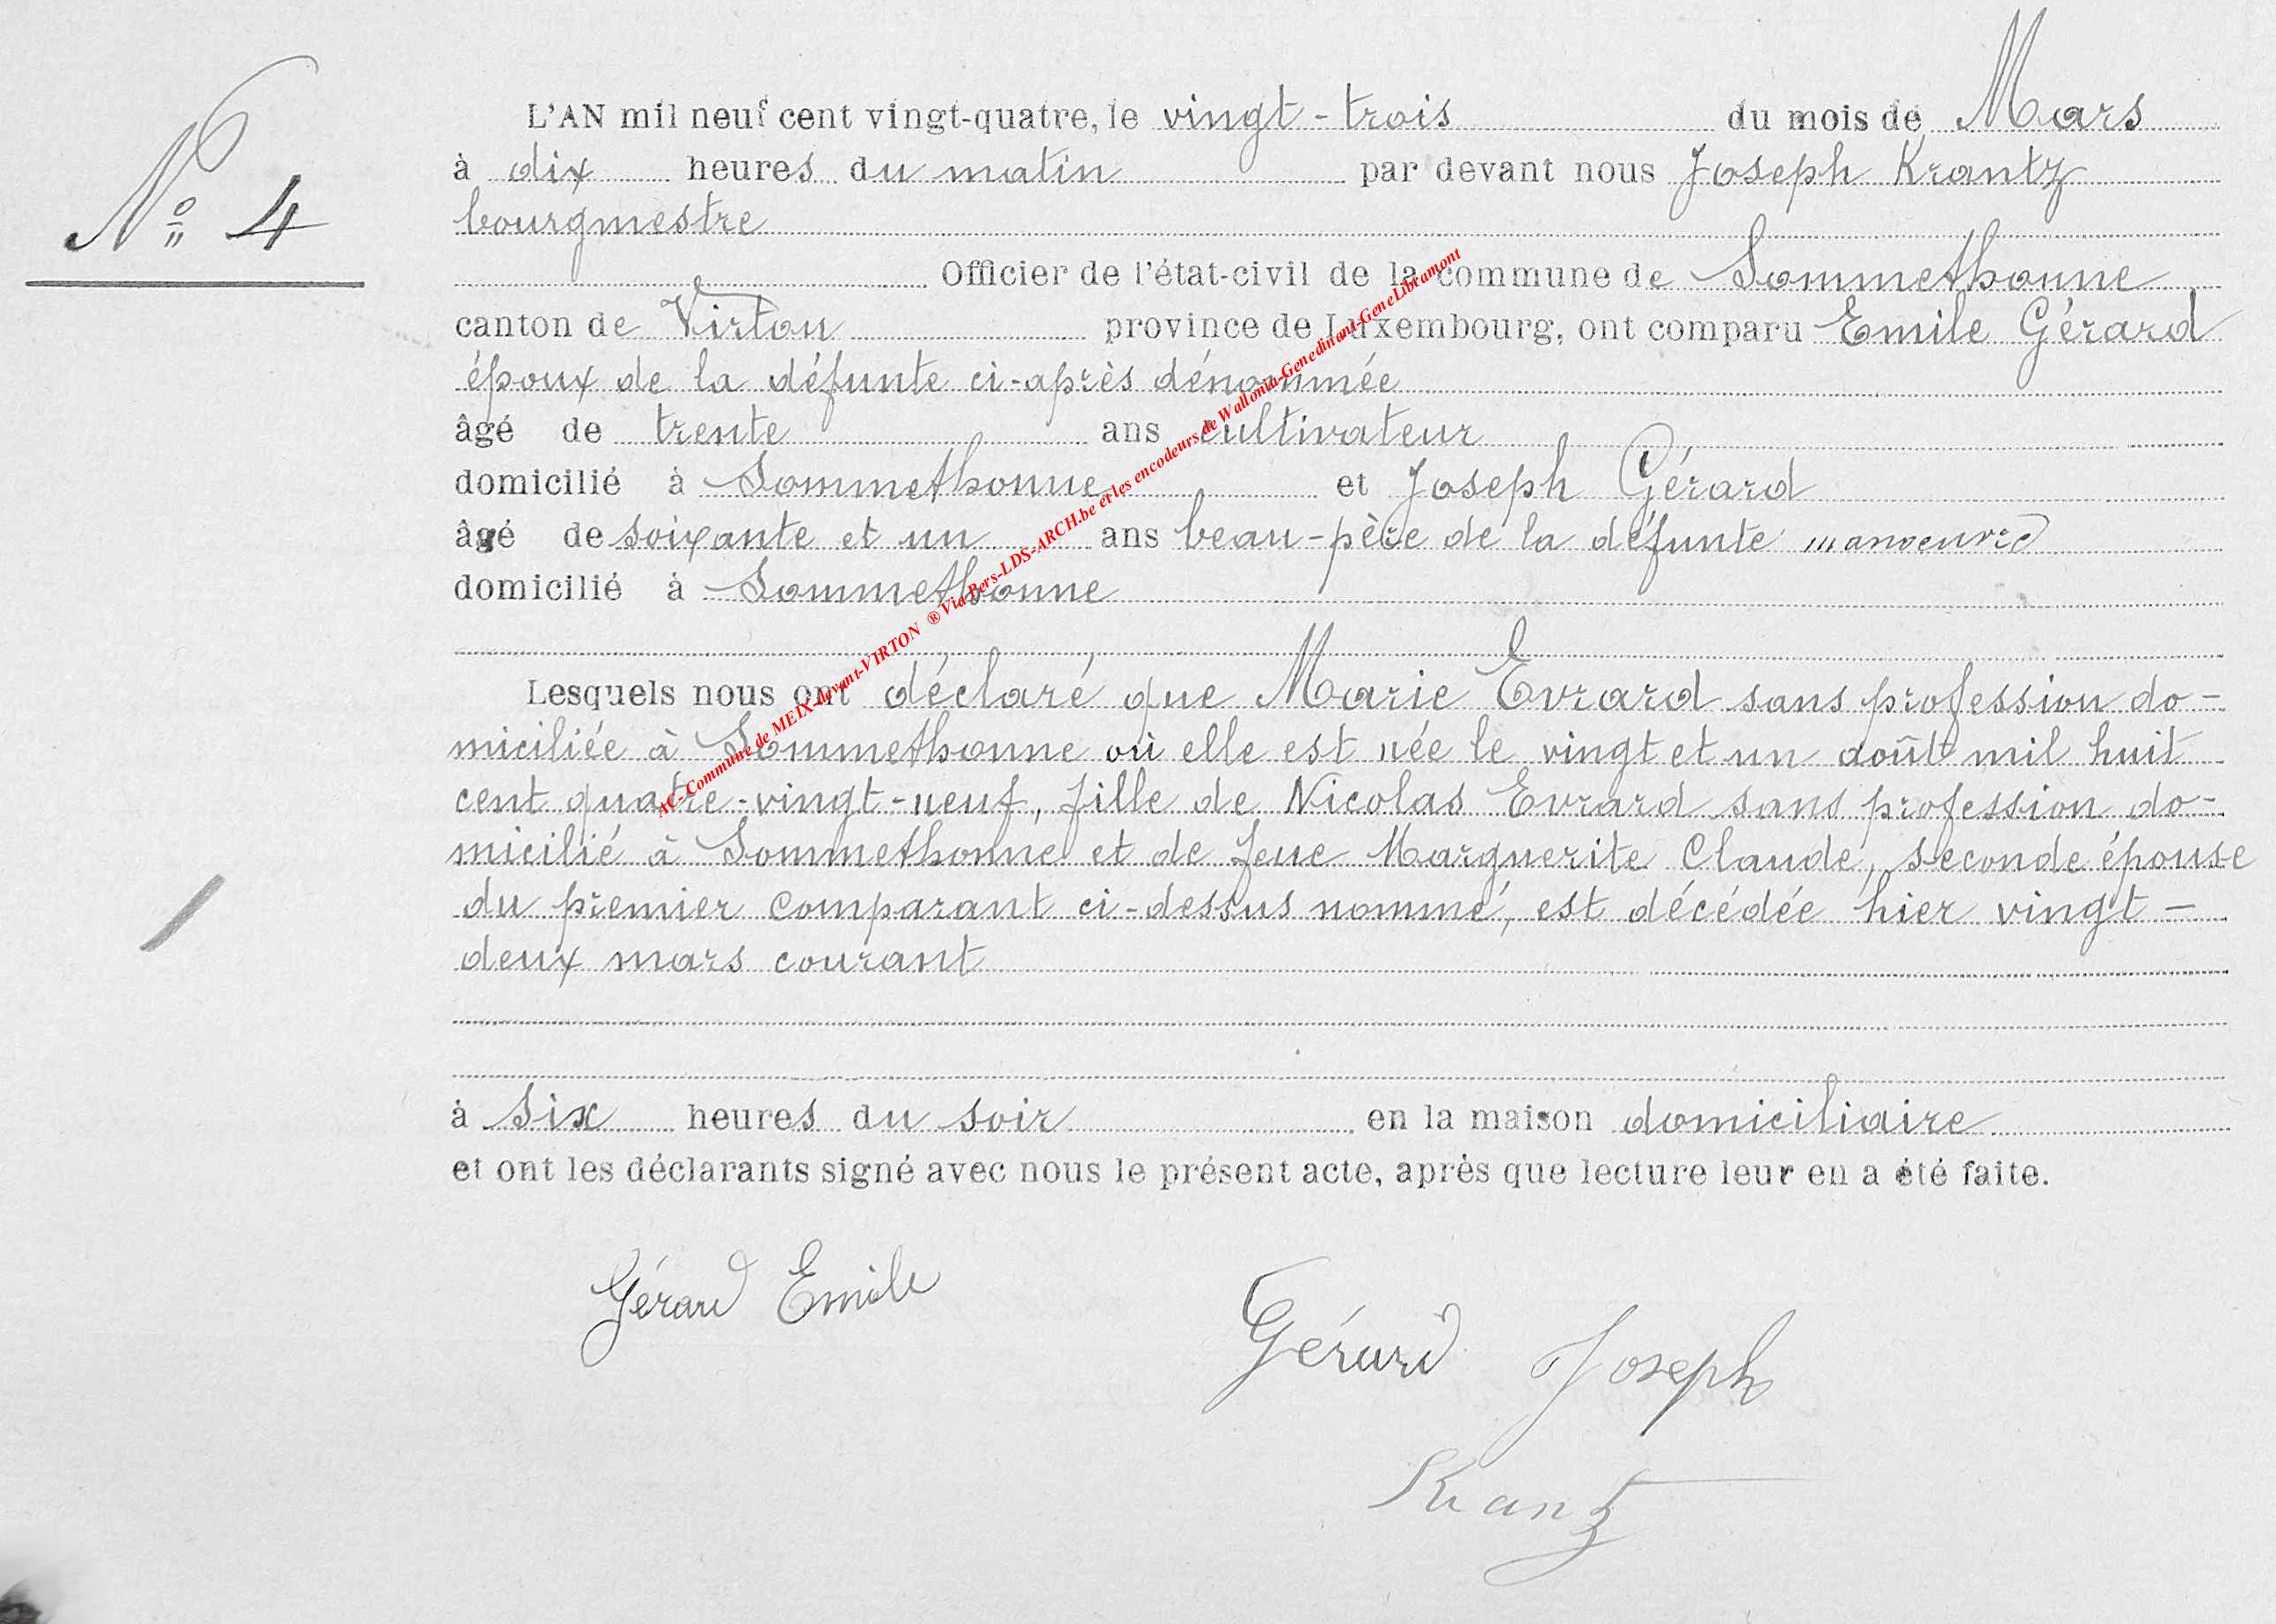 N° 4
L'AN mil neuf cent vingt-quatre, le vingt-trois du mois de Mars
à dix heures du matin par devant nous Joseph Krantz
bourgmestre
Officier de l'état-civil de la commune de Sommethonne
canton de Virton province de Luxembourg, ont comparu Emile Gérard
époux de la défunte ci-après dénommée
âgé de trente ans cultivateur
domicilié à Sommethonne et Joseph Gérard
âgé de soixante et un ans beau-père de la défunte manoeuvre
domicilié à Sommethonne
Lesquels nous ont déclaré que Marie Evrard sans profession do-
miciliée à Sommethonne où elle est née le vingt et un août mil huit
cent quatre-vingt-neuf, fille de Nicolas Evrard sans profession do-
micilié à Sommethonne et de feue Marguerite Claude, seconde épouse
du premier comparant ci-dessus nommé, est décédée hier vingt-
deux mars courant
à six heures du soir en la maison domiciliaire
et ont les déclarants signé avec nous le présent acte, après que lecture leur en a été faite.
Gérard Emile
Gérard Joseph
Krantz
AC-Commune de MEIX-devant-VIRTON ® Via Bers-LDS-ARCH.be et les encodeurs de Wallonia-Genedinant-GeneLibramont